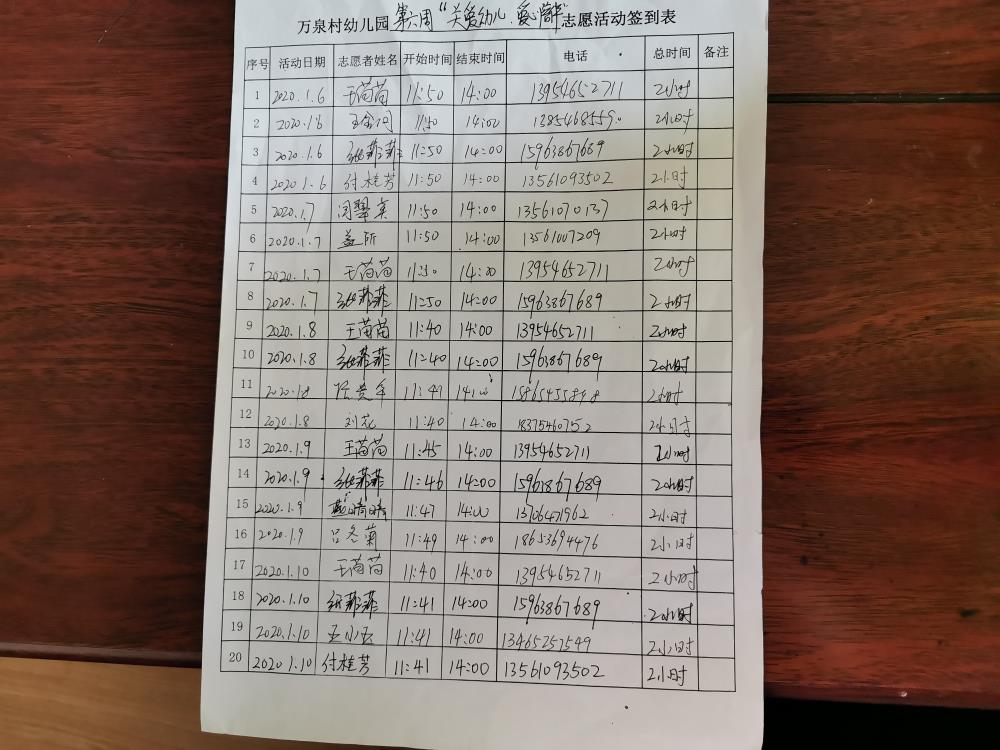 万泉村幼儿园第六周“关爱幼儿.爱心陪伴”志愿活动签到表
序号 活动日期 志愿者姓名 开始时间 结束时间 电话 总时间 备注
1 2020.1.6 王苗苗 11:50 14:00 13954652711 2小时
2 2020.1.6 11:50 14:00 1385468559 2小时
3 2020.1.6 张菲菲 11:50 14:00 15963867689 2小时
4 2020.1.6 付桂芳 11:50 14:00 13561093502 2小时
5 2020.1.7 闫翠英 11:50 14:00 13561070137 2小时
6 2020.1.7 11:50 14:00 13561007209 2小时
7 2020.1.7 王苗苗 11:50 14:00 13954652711 2小时
8 2020.1.7 张菲菲 11:50 14:00 15963867689 2小时
9 2020.1.8 王苗苗 11:40 14:00 13954652711 2小时
10 2020.1.8 张菲菲 11:40 14:00 15963867689 2小时
11 2020.1.8 14:00 2小时
12 2020.1.8 刘花 11:40 14:00 18375460752 2小时
13 2020.1.9 王苗苗 11:45 14:00 13954652711 2小时
14 2020.1.9 张菲菲 11:46 14:00 15963867689 2小时
15 2020.1.9 燕晴晴 11:47 14:00 13706471962 2小时
16 2020.1.9 吕冬菊 11:49 14:00 18653694476 2小时
17 2020.1.10 王苗苗 11:40 14:00 13954652711 2小时
18 2020.1.10 张菲菲 11:41 14:00 15963867689 2小时
19 2020.1.10 王小玉 11:41 14:00 13465257599 2小时
20 2020.1.10 付桂芳 11:41 14:00 13561093502 2小时